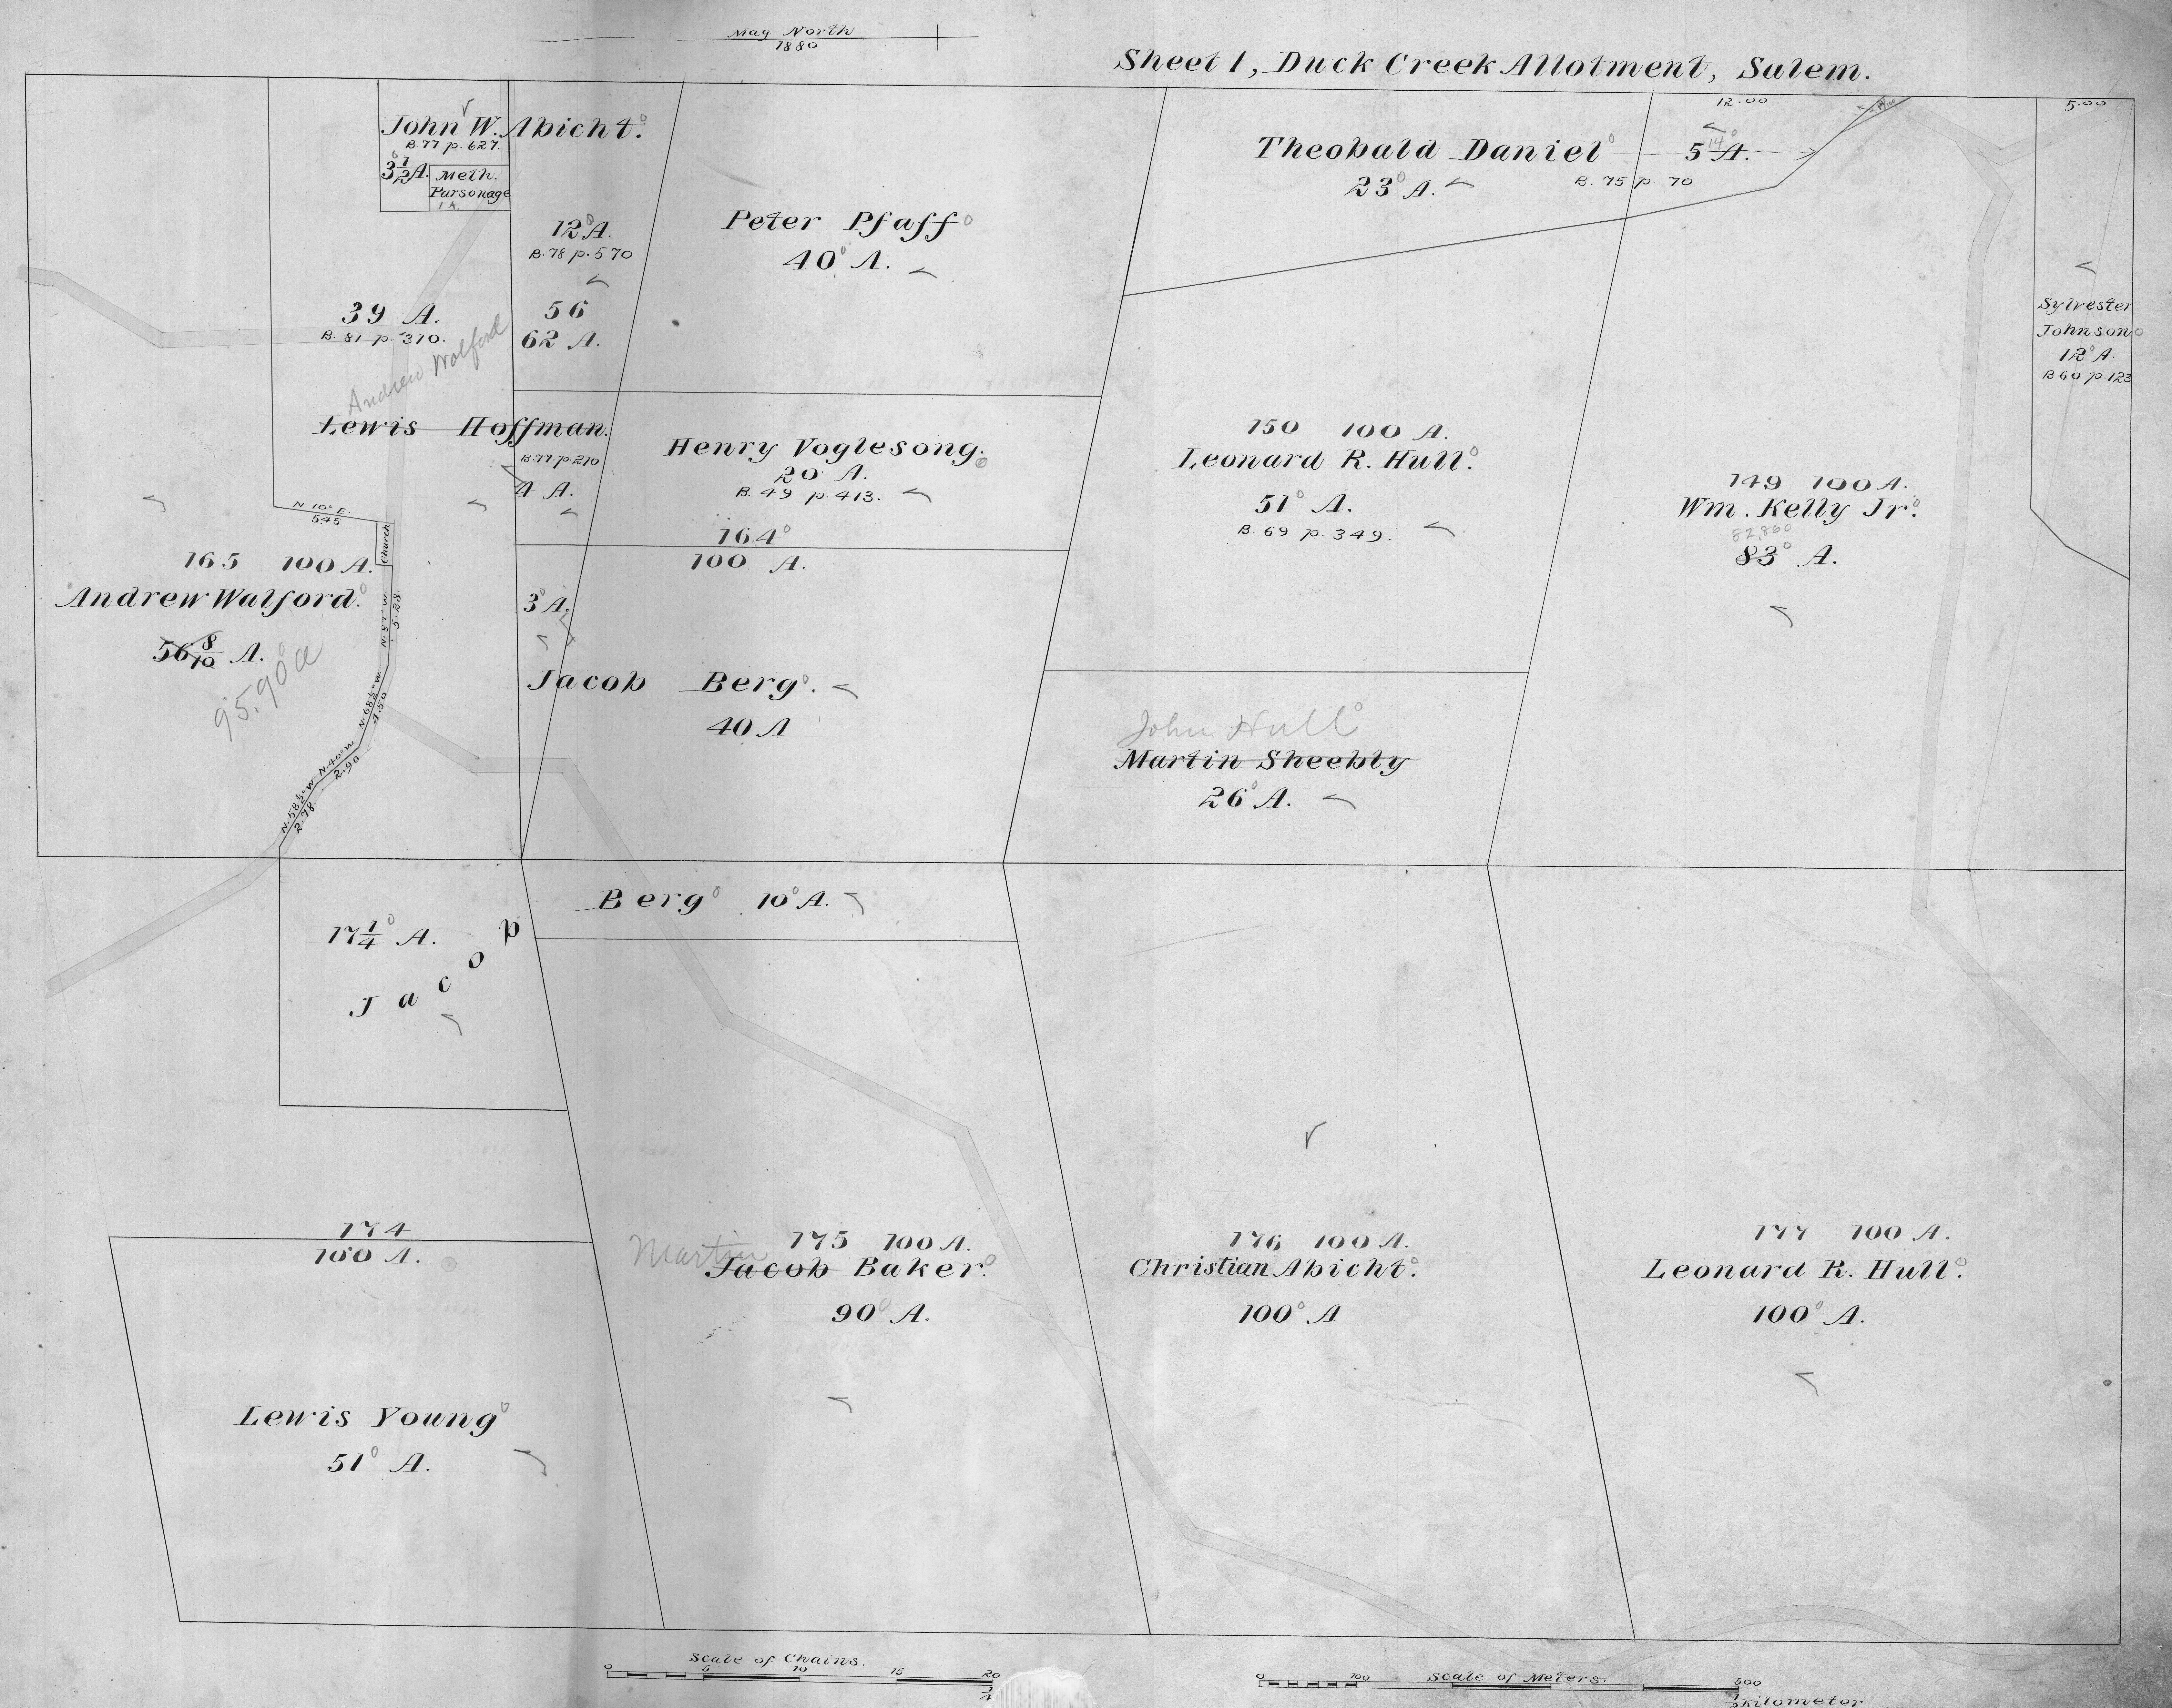 Mag North
1880
Sheet 1, Duck Creek Allotment, Salem.
John W. Abicht.
B. 77 p. 627.
3 1/2 A.
Meth.
Parsonage
1 A.
12 A.
B. 78 p. 570
56
62 A.
Peter Pfaff
40 A.
Theobald Daniel
23 A.
5 A.
14
B. 75 p. 70
12.00
5.00
Sylvester
Johnson
12 A.
B 60 p. 123
39 A.
B. 81 p. 310.
Andrew Wolford
Lewis Hoffman.
B. 77. p. 210
4 A.
Henry Voglesong.
20 A.
B. 49 p. 413.
164
100 A.
150 100 A.
Leonard R. Hull.
51 A.
B. 69 p. 349.
149 100 A.
Wm. Kelly Jr.
82.860
83 A.
N. 10° E.
5.45
Church
165 100 A.
Andrew Walford.
56 8/10 A.
95.90 a
N. 87° W.
5.28
N. 68 1/2° W.
1.50
N. 40° W
2.90
N. 58 1/2° W
2.78
3 A.
Jacob Berg.
40 A
John Hull
Martin Sheebty
26 A.
Berg 10 A.
17 1/4 A.
Jacob
174
100 A.
Martin
175 100 A.
Jacob Baker.
90 A.
176 100 A.
Christian Abicht.
100 A
177 100 A.
Leonard R. Hull.
100 A.
Lewis Young
51 A.
Scale of Chains.
0 5 10 15 20
1/4
Scale of Meters.
0 100 500
1/2 kilometer